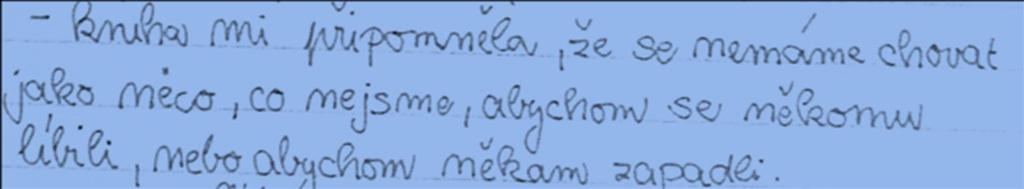 - kniha mi připomněla, že se nemáme chovat
jako něco, co nejsme, abychom se někomu
líbili, nebo abychom někam zapadli.